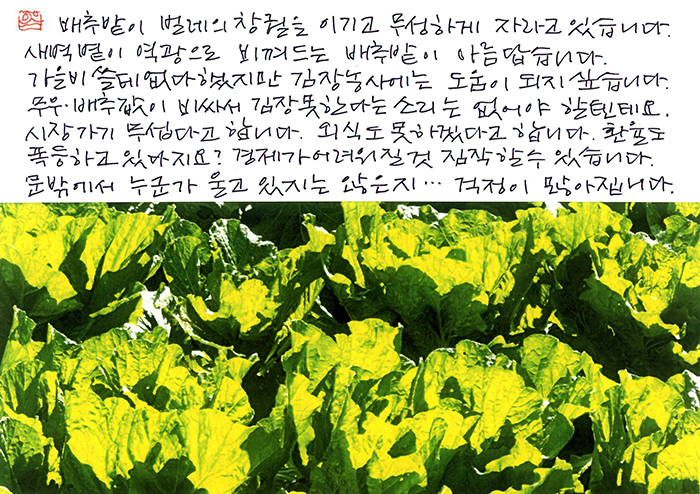 배추밭이 벌레의 창궐을 이기고 무성하게 자라고 있습니다.
새벽 볕이 역광으로 비껴드는 배추밭이 아름답습니다.
가을비 쓸데없다 했지만 김장농사에는 도움이 되지 싶습니다.
무우·배추값이 비싸서 김장 못한다는 소리는 없어야 할텐데요.
시장가기 무섭다고 합니다. 외식도 못하겠다고 합니다. 환율도
폭등하고 있다지요? 경제가 어려워질 것 짐작할 수 있습니다.
문밖에서 누군가 울고 있지는 않은지… 걱정이 많아집니다.